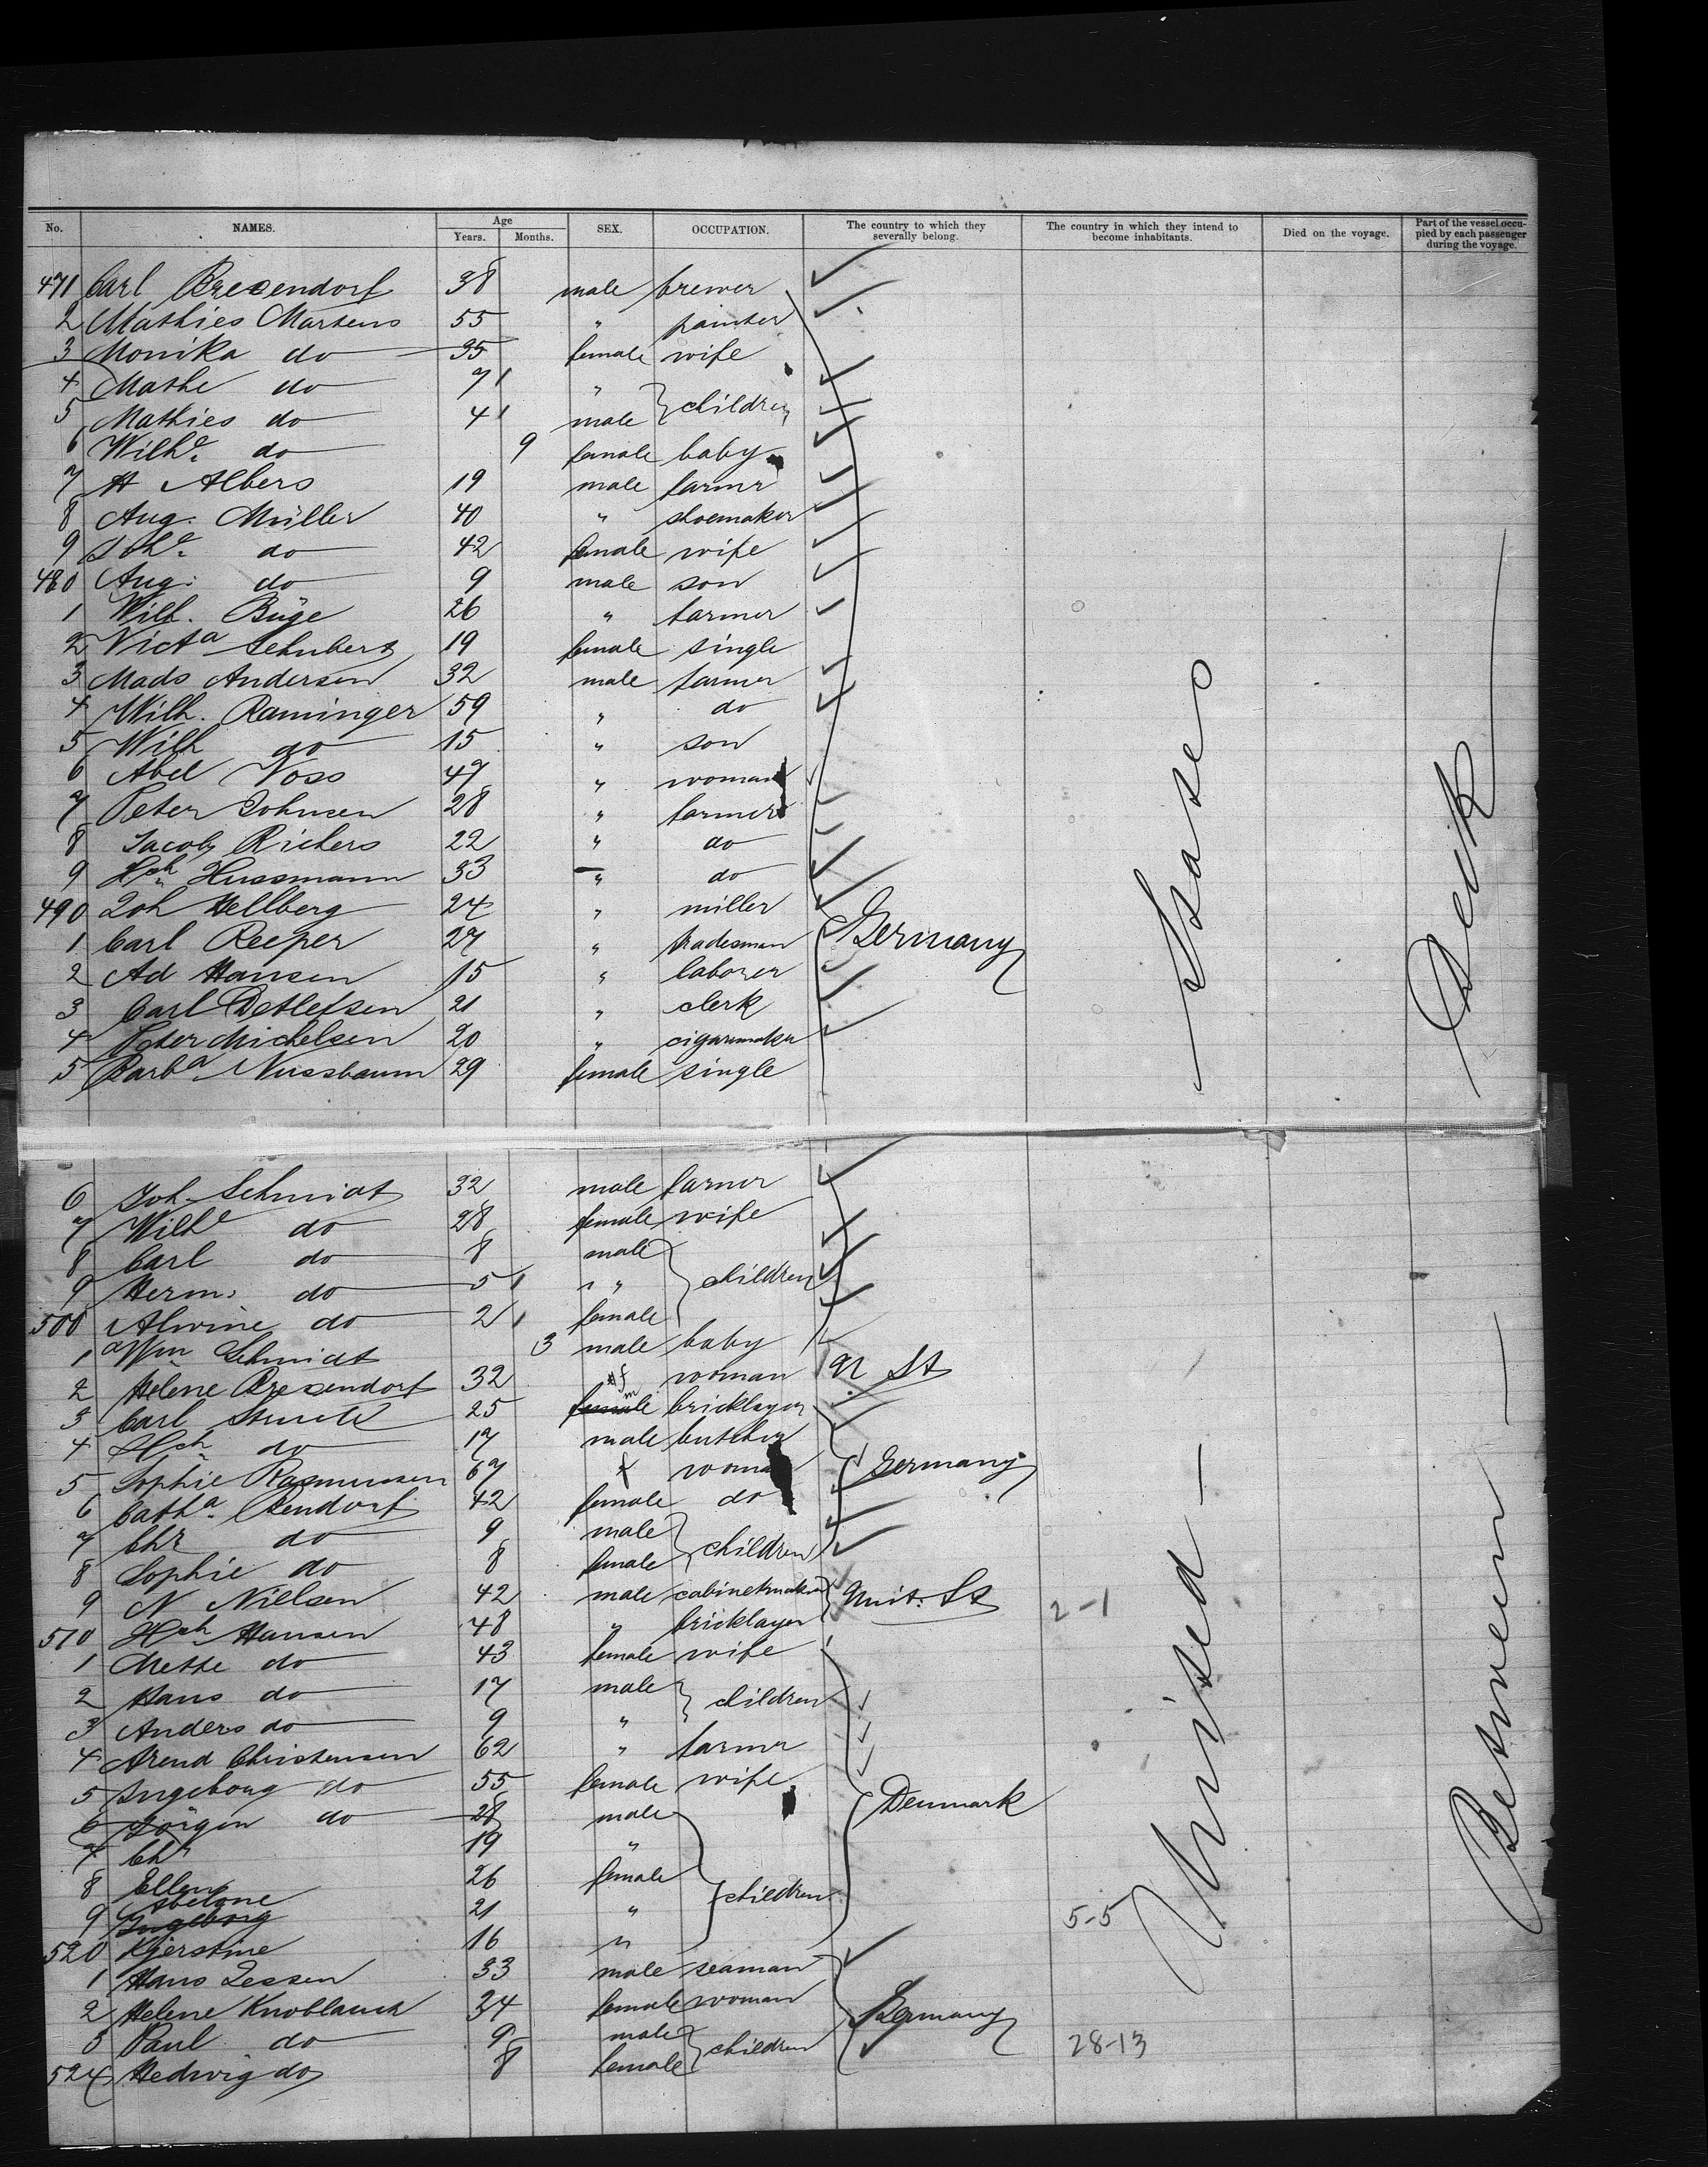 No. NAMES. Age Years. Months. SEX. OCCUPATION. The country to which they severally belong. The country in which they intend to become inhabitants. Died on the voyage. Part of the vessel occupied by each passenger during the voyage.
471 Carl Brexendorf 38 male brewer
2 Mathies Martens 55 " painter
3 Monika do 35 female wife
4 Mathe do 7 " children
5 Mathies do 4 male
6 Wilhe. do 9 female baby
7 H Albers 19 male farmer
8 Aug. Müller 40 " shoemaker
9 Johe. do 42 female wife
480 Aug. do 9 male son
1 Wilh. Büge 26 " farmer
2 Victa Schubert 19 female single
3 Mads Andersen 32 male farmer
4 Wilh. Raminger 59 " do
5 Wilh do 15 " son
6 Abel Voss 49 " woman
7 Peter Johnsen 28 " farmer
8 Jacob Richers 22 " do
9 Hch Hussmann 33 " do
490 Joh Hellberg 24 " miller
1 Carl Reeper 27 " tradesman Germany
2 Ad Hansen 15 " laborer
3 Carl Detlefsen 21 " clerk
4 Peter Michelsen 20 " cigarmaker
5 Barba Nussbaum 29 female single
6 Joh. Schmidt 32 male farmer
7 Wilhe do 28 female wife
8 Carl do 8 male children
9 Herm. do 5 "
500 Alwine do 2 female
1 Wm Schmidt 3 male baby
2 Helene Brexendorf 32 f woman U St
3 Carl Struck 25 male bricklayer
4 Hch do 17 male butcher
5 Sophie Rasmussen 67 f woman Germany
6 Catha. Oendorf 42 female do
7 Chr do 9 male children
8 Sophie do 8 female
9 N Nielsen 42 male cabinetmaker Unit. St 2-1
510 Hch Hansen 48 " bricklayer
1 Mette do 43 female wife
2 Hans do 17 male children
3 Anders do 9 "
4 Arend Christensen 62 " farmer
5 Ingeborg do 55 female wife
6 Jörgen do 28 male Denmark
7 Chr 19 "
8 Ellen 26 female children
9 Abelone Ingeborg 21 " 5-5
520 Kjerstine 16 "
1 Hans Jessen 33 male seaman
2 Helene Knoblauch 34 female woman Germany
3 Paul do 9 male children 28-13
524 Hedwig do 8 female
United States
Between Deck